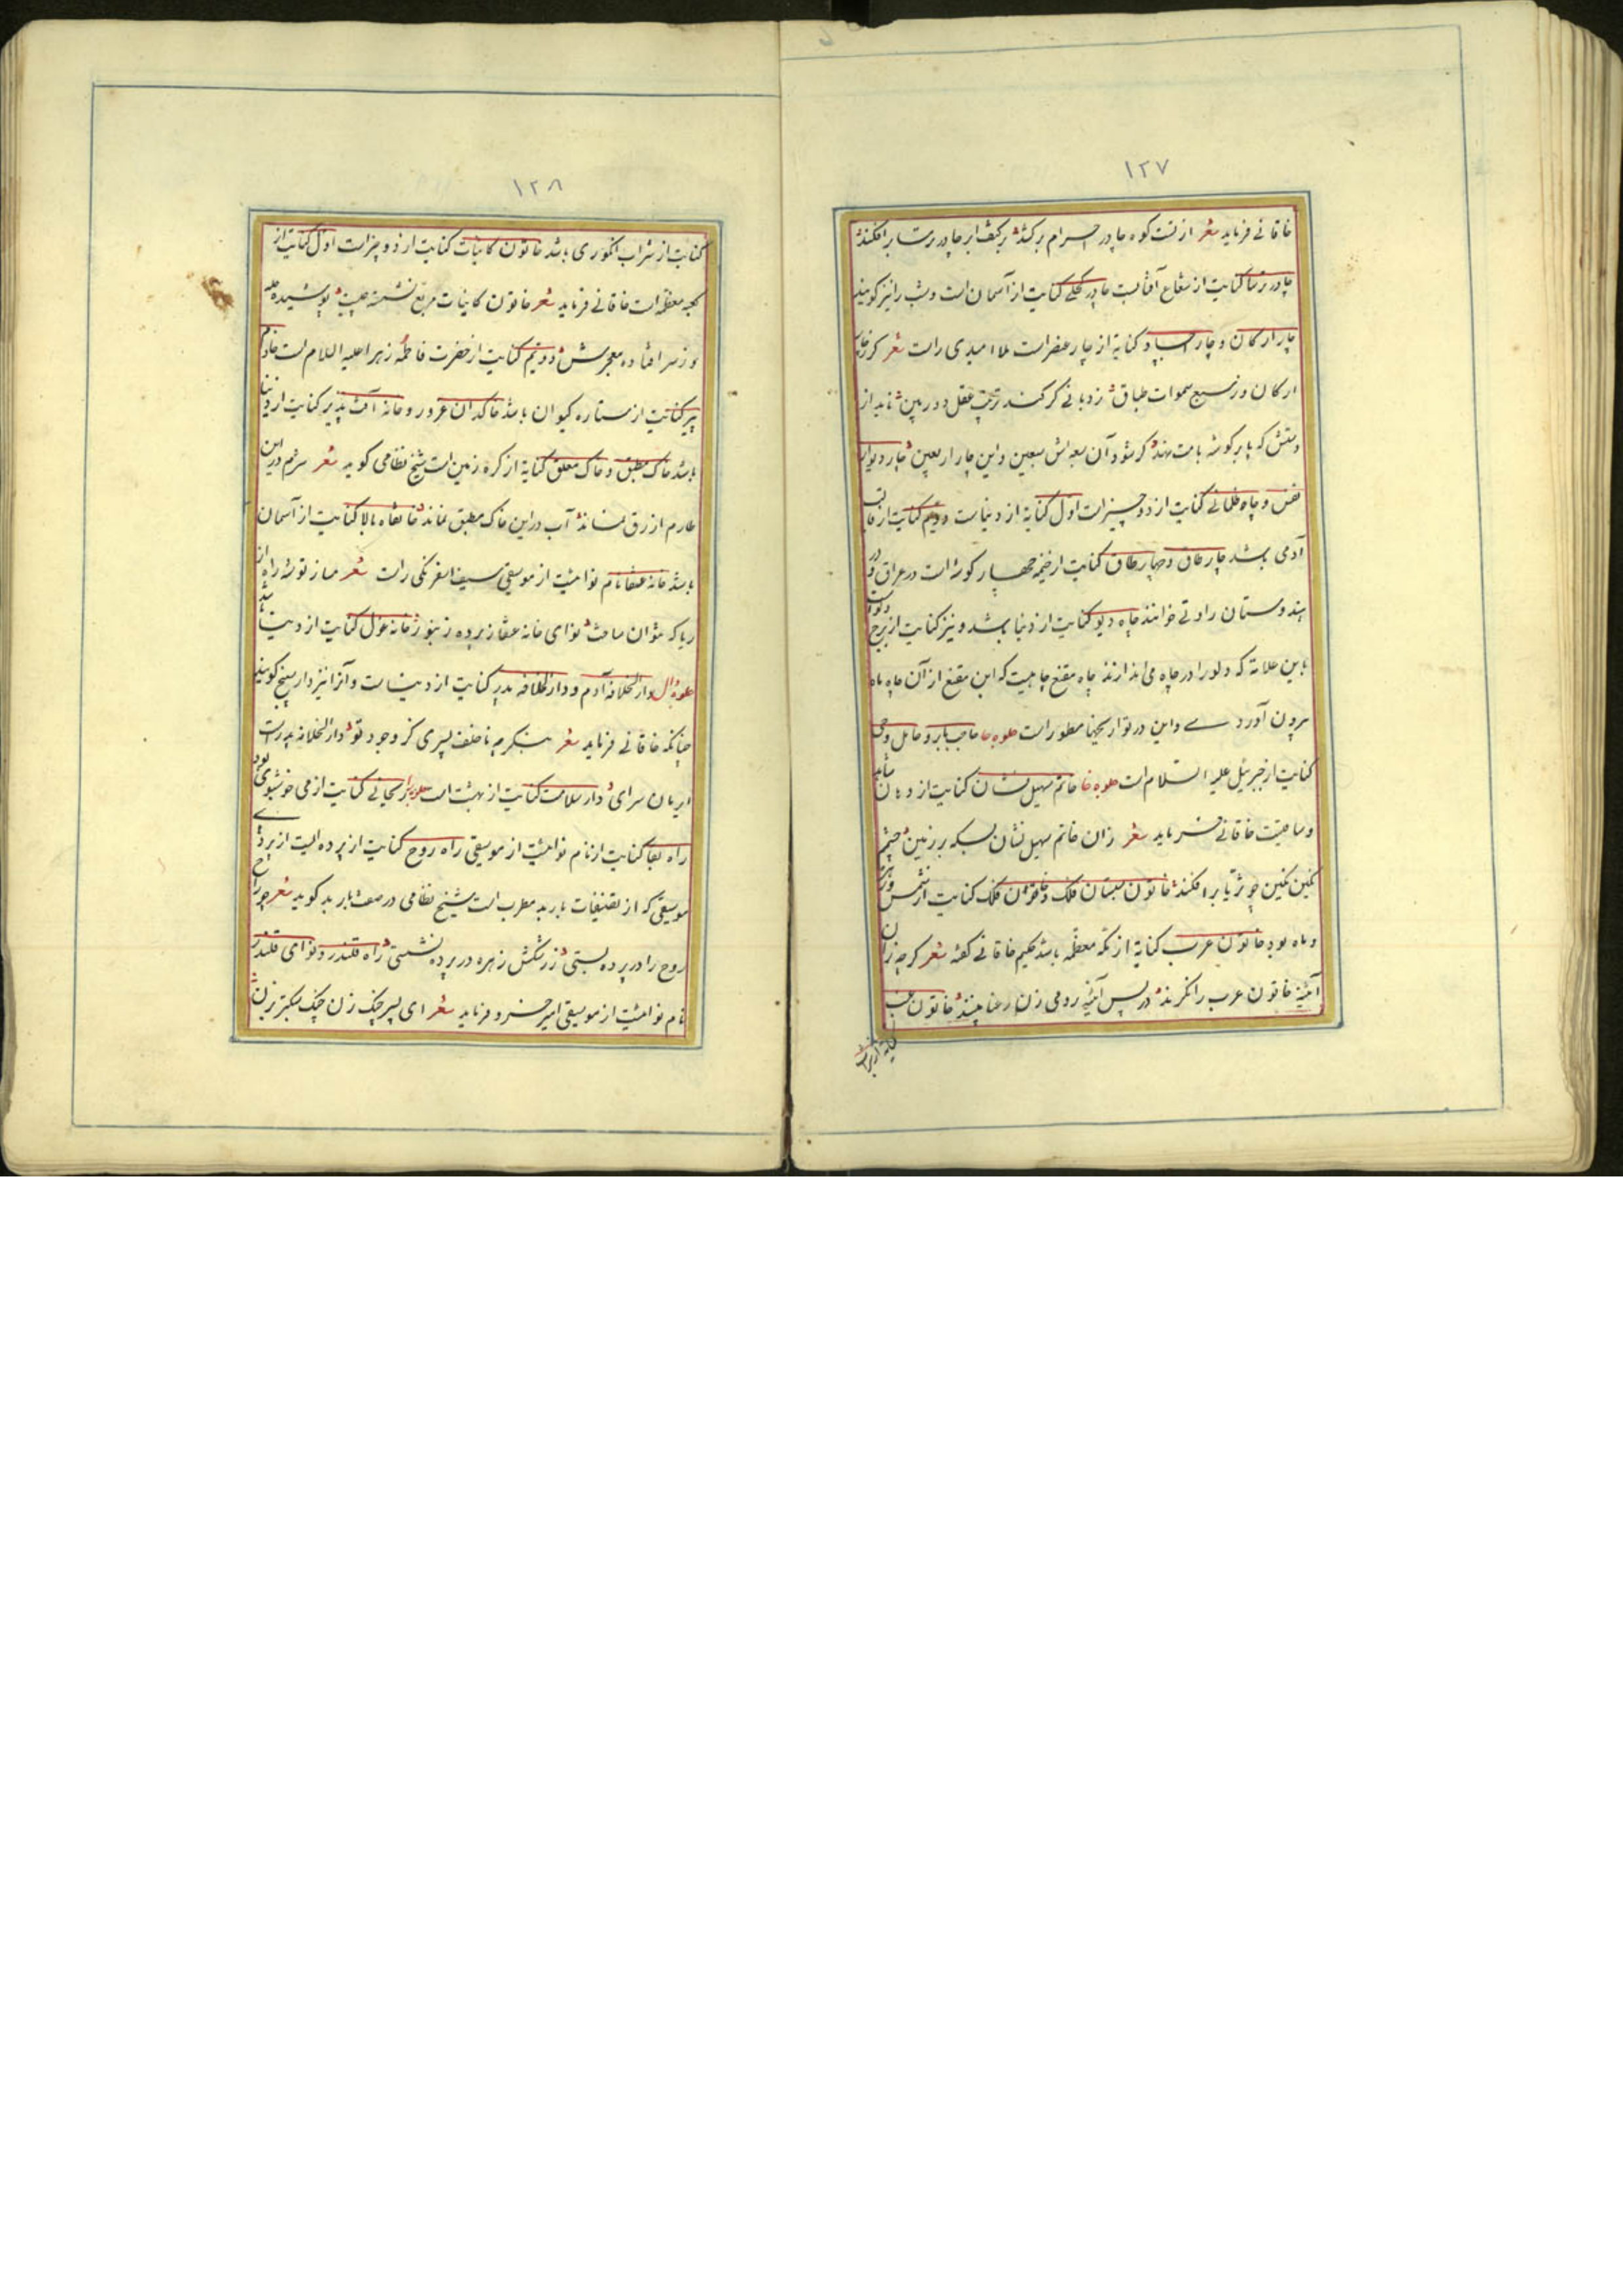 ۱۲۷
خاقانی فرماید شعر از تست کوه چادر احرام برکشد بر کتف ابر چادر ترسا برافکند
چادر ترسا کنایت از شعاع آفتاب چادر کحلی کنایت از آسمان است و شب را نیز گویند
چار ارکان و چار کنایة از چار عنصر است ملا امیدی راست شعر گر
ارکان وز سبع سموات طباق نردبانی گر کند ترتیب عقل دوربین ناید از
دستش که پا بر گوشه بامت نهد گر شود آن سبعه اش سبعین و این چار اربعین چار دیوار
نفس و چاه ظلمانی کنایت از دو چیز است اول کنایة از دنیاست و دویم کنایت از قالب
آدمی باشد چار طاق و چهار طاق کنایت از خیمه چهار گوشه است در عراق و در
هندوستان راوتی خوانند چاه دیو کنایت از دنیا باشد و نیز کنایت از برج دلو است
باین علاقه که دلو را در چاه می اندازند چاه مقنع چاهیست که ابن مقنع از آن چاه ماه
بیرون آورد ے و این در تواریخها مسطور است جلوه حا حاجب بار و حامل وحی
کنایت از جبرئیل علیه السلام است جلوه خا خاتم سهیل نشان کنایت از دهان
خاقانی فرماید شعر زان خاتم سهیل نشان بسکه بر زمین چشم
نگین نگین چو ثریا برافکند خاتون شبستان فلک و خاتون فلک کنایت از شمس و زهره
و ماه بود خاتون عرب کنایة از مکه معظمه باشد حکیم خاقانی گفته شعر گرچه زان
آینه خاتون عرب را نگرند در پس آینه رومی زن رعنا بینند خاتون عنب
۱۲۸
کنایت از شراب انگوری باشد خاتون کاینات کنایت از دو چیز است اول کنایت از
کعبه معظمه است خاقانی فرماید شعر خاتون کاینات مربع نشسته پوشیده حله
و ز سر افتاده معجرش و دویم کنایت از حضرت فاطمه زهرا علیه السلام است خادم
پیر کنایت از ستاره کیوان باشد خاکدان غرور و خانه آفت پذیر کنایت از دنیا
باشد خاک مطبق و خاک معلق کنایة از کره زمین است شیخ نظامی گوید شعر سرم در این
طارم ازرق نماند آب در این خاک مطبق نماند خانقاه بالا کنایت از آسمان
باشد خانه عنقا نام نوائیست از موسیقی سیف اسفرنگی راست شعر ساز توشه راه از
ریا که نتوان ساخت نوای خانه عنقا ز پرده زنبور خانه غول کنایت از دنیا باشد
جلوه دال دار الخلافه آدم و دار الخلافه پدر کنایت از دنیاست و آنرا نیز دار سپنج گویند
چنانکه خاقانی فرماید شعر بنگرم ناخلف پسری کز وجود تو دار الخلافه پدر است
ایرمان سرای دار سلامت کنایت از بهشت است جلوه را ریحانی کنایت از می خوشبوی بود
راه بقا کنایت از نام نوائیست از موسیقی راه روح کنایت از پرده ایست از پرده
موسیقی که از تصنیفات باربد مطرب است شیخ نظامی در صفت باربد گوید شعر چو راه
روح را در پرده بستی ز رشکش زهره در پرده نشستی راه قلندر و نوای قلندر
نام نوائیست از موسیقی امیر خسرو فرماید شعر ای پسر چنگ زن چنگ سبکتر بزن